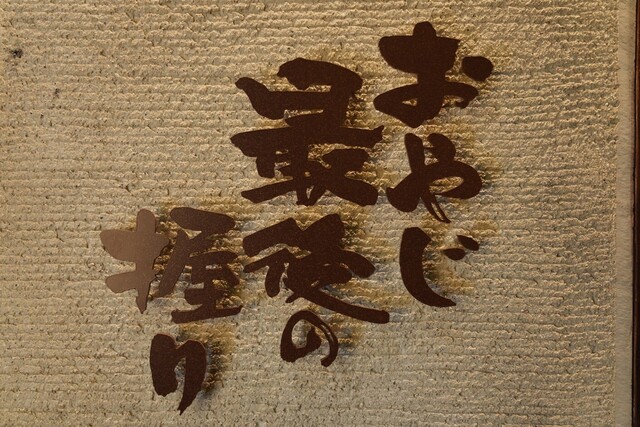 おやじ
最後の
握り